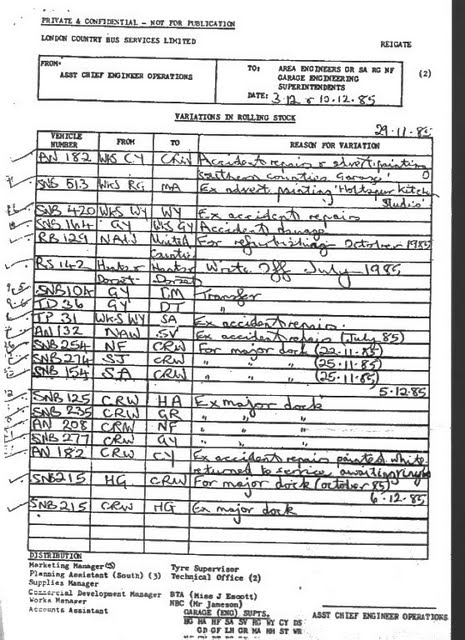 PRIVATE & CONFIDENTIAL - NOT FOR PUBLICATION
LONDON COUNTRY BUS SERVICES LIMITED
REIGATE
FROM:
ASST CHIEF ENGINEER OPERATIONS
TO: AREA ENGINEERS GR SA RG NF (2)
GARAGE ENGINEERING
SUPERINTENDENTS
DATE: 3.12 & 10.12.85
VARIATIONS IN ROLLING STOCK
29.11.85
VEHICLE NUMBER FROM TO REASON FOR VARIATION
AN 182 WKS CY CRW Accident repairs & advert painting
'Southern Counties Garage'
SNB 513 WKS RG MA Ex advert painting 'Holtspur Kitchen
Studio'
SNB 420 WKS WY WY Ex accident repairs
SNB 164 GY WKS GY Accident damage
RB 129 NAW United For refurbishing October 1985
Counties
RS 142 Hants & Hants & Wrote Off July 1985
Dorset Dorset
SNB 104 GY DM Transfer
TD 36 GY DT "
TP 31 WKS WY SA Ex accident repairs.
AN 132 NAW SV Ex accident repairs (July 85)
SNB 254 NF CRW For major dock (22.11.85)
SNB 274 SJ CRW " " (25.11.85)
SNB 154 SA CRW " " (25.11.85)
5.12.85
SNB 125 CRW HA Ex major dock
SNB 235 CRW GR " "
AN 208 CRW NF " "
SNB 277 CRW GY " "
AN 182 CRW CY Ex accident repairs painted white
returned to service awaiting
SNB 215 HG CRW For major dock (October 85)
6.12.85
SNB 215 CRW HG Ex major dock
DISTRIBUTION
Marketing Manager(S) Tyre Supervisor
Planning Assistant (South) (3) Technical Office (2)
Supplies Manager
Commercial Development Manager BTA (Miss J Esmott)
Works Manager NBC (Mr Jameson)
Accounts Assistant GARAGE (ENG) SUPTS.
ASST CHIEF ENGINEER OPERATIONS
HG HA HF SA SV RG WY CY DS
GD GF LH GR MA HH ST WR